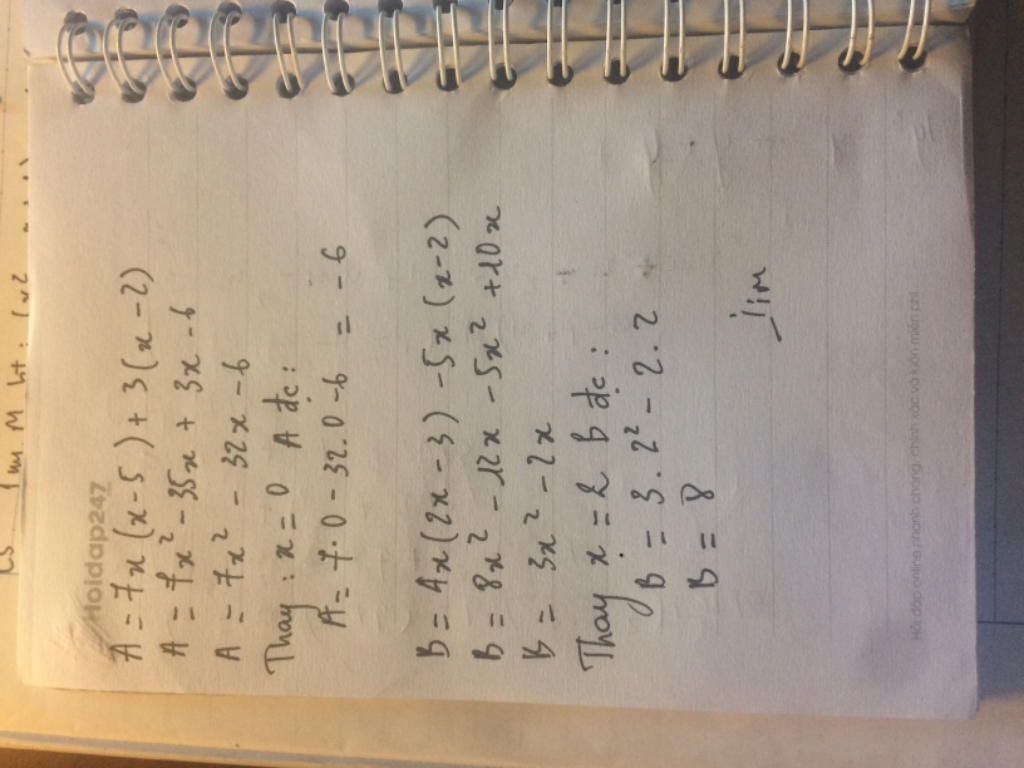 Hoidap247
A = 7x(x-5) + 3(x-2)
A = 7x² - 35x + 3x - 6
A = 7x² - 32x - 6
Thay : x = 0 A đc :
A = 7.0 - 32.0 - 6 = - 6
B = 4x(2x-3) - 5x(x-2)
B = 8x² - 12x - 5x² + 10x
B = 3x² - 2x
Thay x = 2 B đc :
B = 3.2² - 2.2
B = 8
Hỏi đáp online nhanh chóng, chính xác và luôn miễn phí